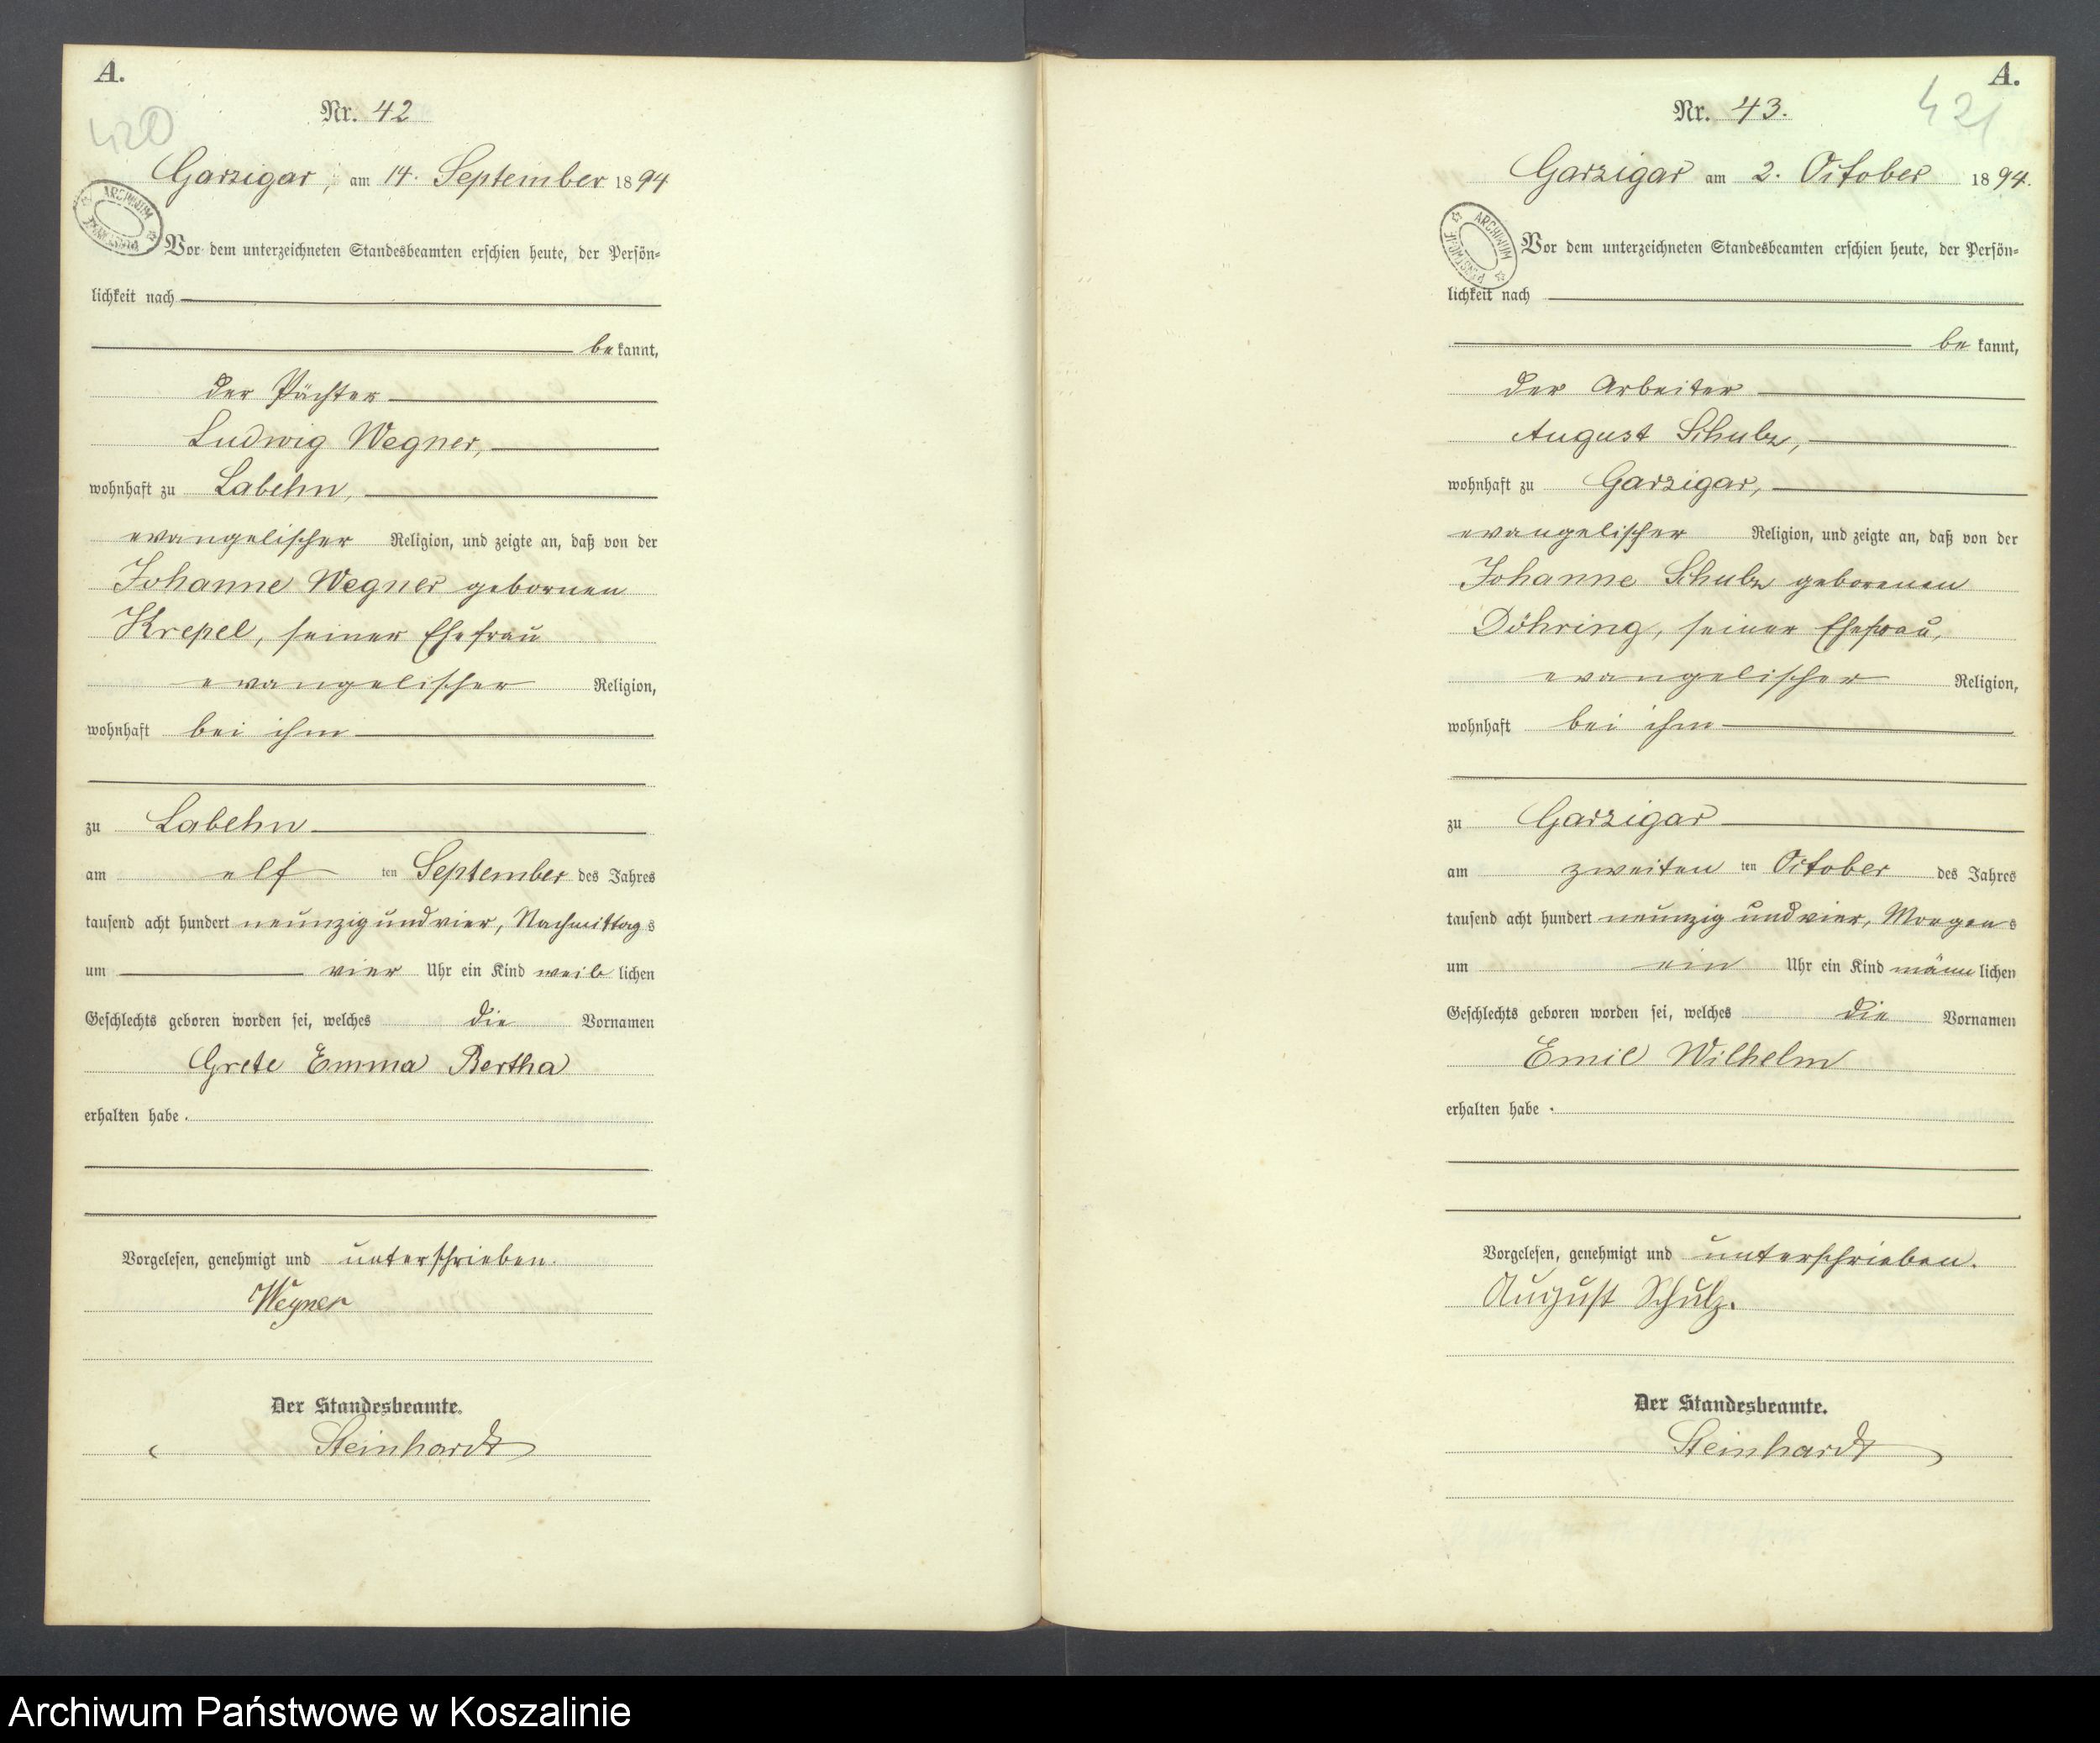 A.
Nr. 42
420
Garzigar, am 14. September 1894
ARCHIWUM PAŃSTWOWE
Vor dem unterzeichneten Standesbeamten erschien heute, der Persön-
lichkeit nach
bekannt,
der Pächter
Ludwig Wegner,
wohnhaft zu Labehn,
evangelischer Religion, und zeigte an, daß von der
Johanne Wegner gebornen
Krepel, seiner Ehefrau
evangelischer Religion,
wohnhaft bei ihm
zu Labehn
am elf ten September des Jahres
tausend acht hundert neunzig und vier, Nachmittags
um vier Uhr ein Kind weiblichen
Geschlechts geboren worden sei, welches die Vornamen
Grete Emma Bertha
erhalten habe.
Vorgelesen, genehmigt und unterschrieben.
Wegner
Der Standesbeamte.
Steinhardt
A.
Nr. 43.
421
Garzigar am 2. October 1894.
ARCHIWUM PAŃSTWOWE
Vor dem unterzeichneten Standesbeamten erschien heute, der Persön-
lichkeit nach
bekannt,
der Arbeiter
August Schulz,
wohnhaft zu Garzigar,
evangelischer Religion, und zeigte an, daß von der
Johanne Schulz geborenen
Döhring, seiner Ehefrau,
evangelischer Religion,
wohnhaft bei ihm
zu Garzigar
am zweiten ten October des Jahres
tausend acht hundert neunzig und vier, Morgens
um ein Uhr ein Kind männlichen
Geschlechts geboren worden sei, welches die Vornamen
Emil Wilhelm
erhalten habe.
Vorgelesen, genehmigt und unterschrieben.
August Schulz.
Der Standesbeamte.
Steinhardt
Archiwum Państwowe w Koszalinie